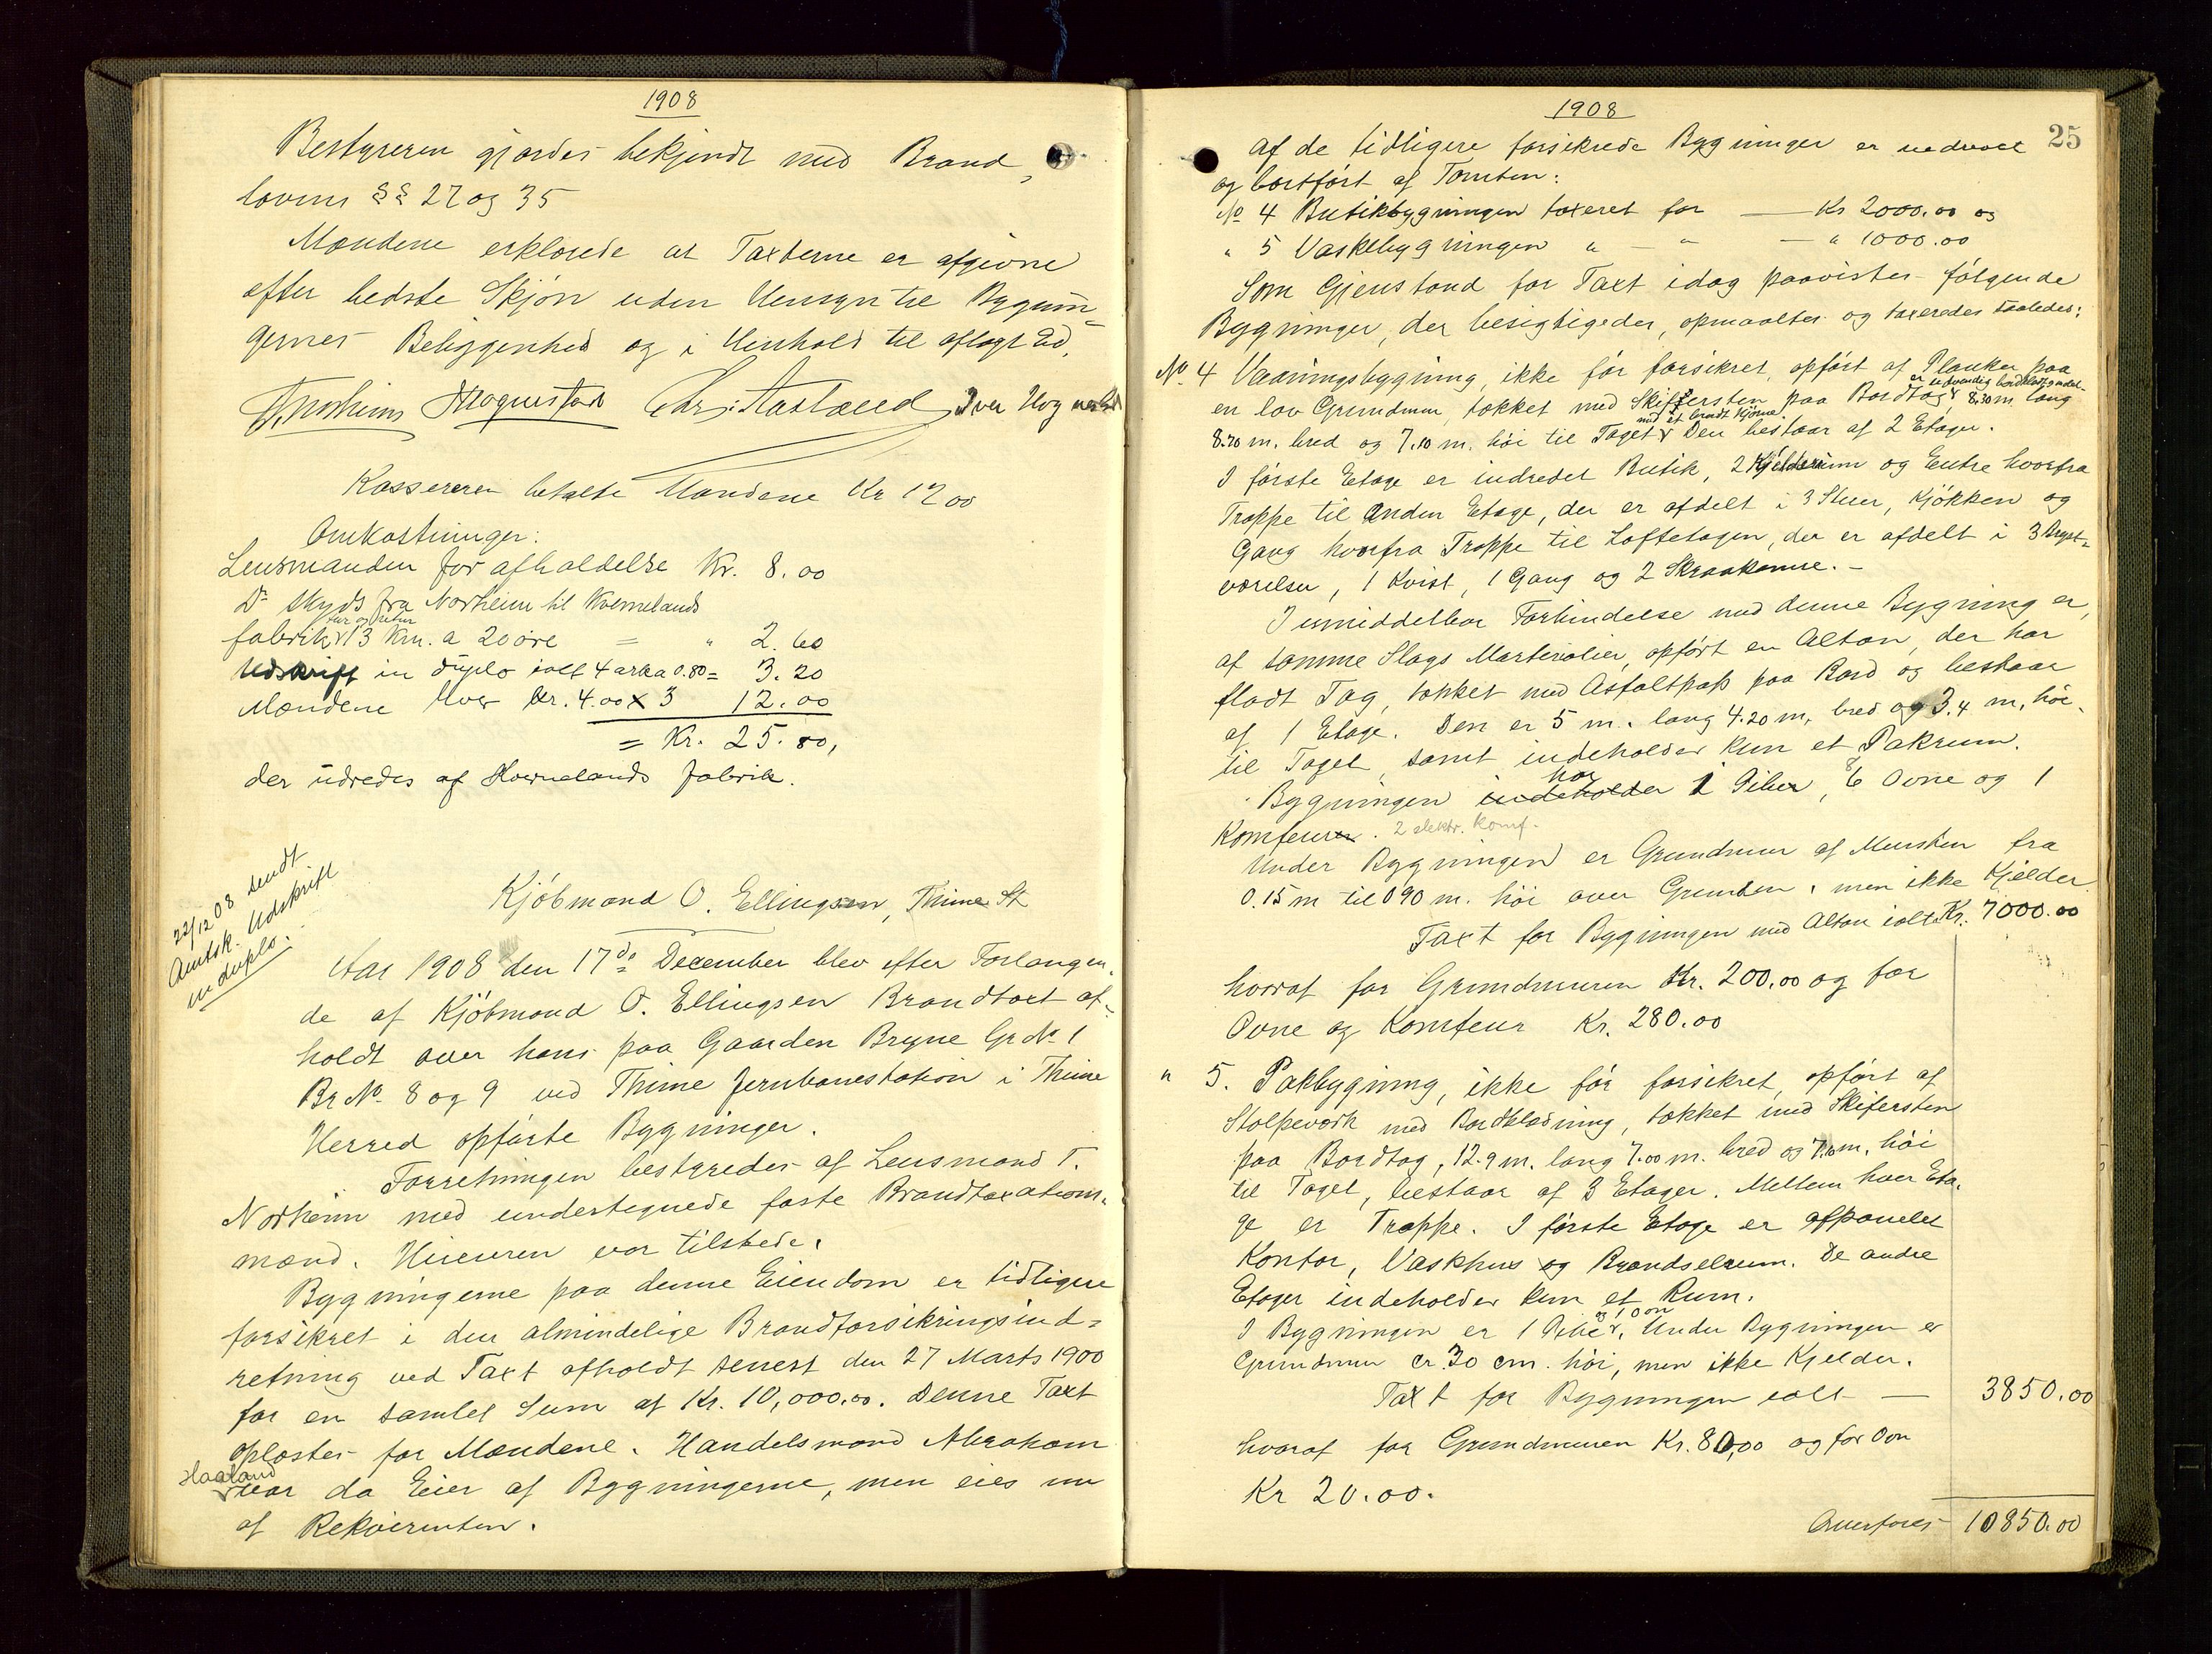 1908
Bestyreren gjordes bekjendt med Brand,
lovens §§ 27 og 35
Mændene erklærede at Taxterne er afgivne
efter bedste Skjøn uden Hensyn til Bygnin=
gernes Beliggenhed og i Henhold til aflagt Ed,
T. Norheim Chr: Aastæed Iver
Kassereren betalte Mændene Kr 12 00
Omkostninger:
Lensmanden for afholdelse Kr. 8.00
Do skyds fra Norheim til Kvernelands
tur og retur
fabrik 13 Km. a 20 øre = " 2.60
Udskrift in duplo ialt 4 ark a 0.80 = 3.20
Mændene hver Kr. 4.00 x 3 12.00
= Kr. 25.80,
der udredes af Kvernelands fabrik.
22/12 08 sendt
Amtsk. Udskrift
in duplo.
Kjöbmand O. Ellingsen, Thime St
Aar 1908 den 17de December blev efter Forlangen,
de af Kjöbmand O. Ellingsen Brandtaxt af-
holdt over hans paa Gaarden Bryne Gr No 1
Br No 8 og 9 ved Thime Jernbanestation i Thime
Herred opförte Bygninger.
Forretningen bestyredes af Lensmand T.
Norheim med undertegnede faste Brandtaxations-
mænd. Huieren var tilstede.
Bygningerne paa denne Eiendom er tidligere
forsikret i den almindelige Brandforsikringsind=
retning ved Taxt afholdt senest den 27 Marts 1900
for en samlet Sum af Kr. 10,000.00. Denne Taxt
oplæstes for Mændene. Handelsmand Abraham
Haaland
var da Eier af Bygningerne, men eies nu
af Rekvirenten.
1908
25
Af de tidligere forsikrede Bygninger er nedrevet
og bortfört af Tomten:
No 4 Butikbygningen taxeret for — Kr 2000.00 og
" 5 Vaskebygningen " — " — " 1000.00
Som Gjenstand for Taxt idag paavistes fölgende
Bygninger, der besigtigedes, opmaaltes og taxeredes saaledes:
No. 4 Vaaningsbygning, ikke för forsikret, opfört af Planker paa
er udvendig bordklædt
en lav Grundmur, tækket med Skifersten paa Bordtag, 8.30 m. lang
med et brudt hjörne.
8.20 m. bred og 7.10 m. höi til Taget Den bestaar af 2 Etager.
I förste Etage er indredet Butik, 2 Kjelderrum og Entre hvorfra
Trappe til Anden Etage, der er afdelt i 3 Stuer, Kjökken og
Gang hvorfra Trappe til Loftetagen, der er afdelt i 3 Bryst=
værelser, 1 Kvist, 1 Gang og 2 Skraakamre. -
I umiddelbar Forbindelse med denne Bygning er,
af samme Slags Marterialier, opfört en Altan, der har
fladt Tag, tækket med Asfaltpap paa Bord og bestaar
af 1 Etage. Den er 5 m. lang 4.20 m. bred og 3.4 m. höi
til Taget, samt indeholder kun et Pakrum.
har 8
Bygningen indeholder 1 Piber, 6 Ovne og 1
Komfeuren. 2 elektr. Komf.
Under Bygningen er Grundmur af Mursten fra
0.15 m til 0 90 m. höi over Grunden, men ikke Kjelder.
Taxt for Bygningen med Altan ialt Kr. 7000.00
hvoraf for Grundmuren Kr. 200.00 og for
Ovne og Komfeur Kr. 280.00
" 5. Pakbygning, ikke för forsikret, opfört af
Stolpeværk med Bordklædning, tækket med Skifersten
paa Bordtag, 12.9 m. lang 7.00 m. bred og 7.10 m. höi
til Taget, bestaar af 3 Etager. Mellem hver Eta-
ge er Trappe. I förste Etage er afpanelet
Kontor, Vaskhus og Brændselrum. De andre
Etager indeholder kun et Rum.
og 1 Ovn
I Bygningen er 1 Pibe. Under Bygningen er
Grundmur cr. 30 cm. höi, men ikke Kjelder.
Taxt for Bygningen ialt — 3850.00
hvoraf for Grundmuren Kr. 80,00 og for Ovn
Kr 20.00.
Overföres 10850.00